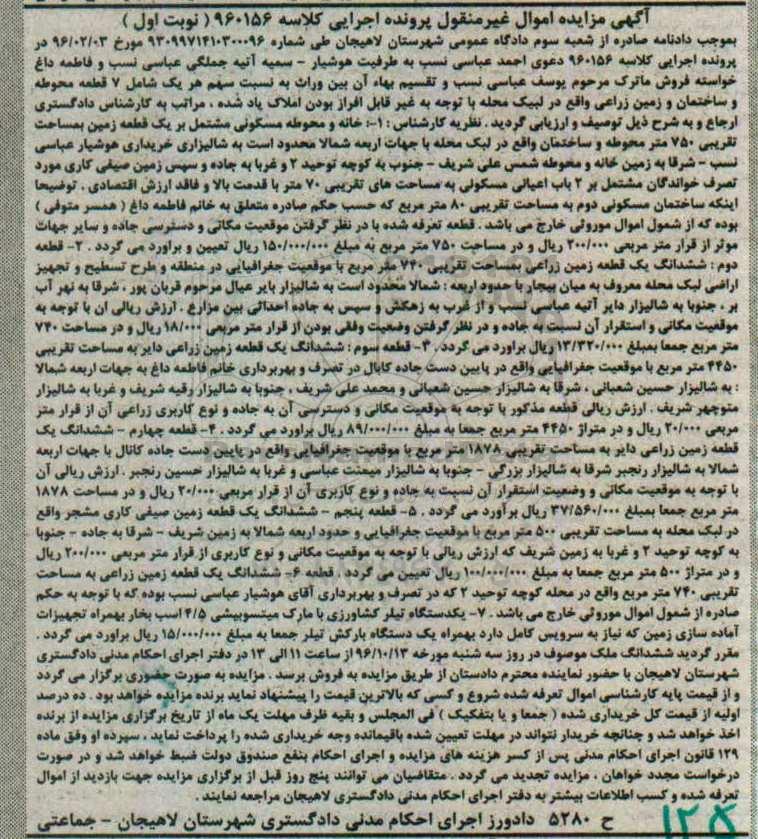 آگهی مزایده اموال غیرمنقول پرونده اجرایی کلاسه ۹۶۰۱۵۶ ( نوبت اول )
بموجب دادنامه صادره از شعبه سوم دادگاه عمومی شهرستان لاهیجان طی شماره ۹۳۰۹۹۷۱۴۱۰۳۰۰۰۹۶ مورخ ۹۶/۰۲/۰۳ در
پرونده اجرایی کلاسه ۹۶۰۱۵۶ دعوی احمد عباسی نسب به طرفیت هوشیار - سمیه آتیه جملگی عباسی نسب و فاطمه داغ
خواسته فروش ماترک مرحوم یوسف عباسی نسب و تقسیم بهاء آن بین وراث به نسبت سهم هر یک شامل ۷ قطعه محوطه
و ساختمان و زمین زراعی واقع در لبیک محله با توجه به غیر قابل افراز بودن املاک یاد شده ، مراتب به کارشناس دادگستری
ارجاع و به شرح ذیل توصیف و ارزیابی گردید . نظریه کارشناس : ۱- خانه و محوطه مسکونی مشتمل بر یک قطعه زمین بمساحت
تقریبی ۷۵۰ متر محوطه و ساختمان واقع در لبک محله با جهات اربعه شمالا محدود است به شالیزاری خریداری هوشیار عباسی
نسب - شرقا به زمین خانه و محوطه شمس علی شریف - جنوب به کوچه توحید ۲ و غربا به جاده و سپس زمین صیفی کاری مورد
تصرف خواندگان مشتمل بر ۲ باب اعیانی مسکونی به مساحت های تقریبی ۷۰ متر با قدمت بالا و فاقد ارزش اقتصادی . توضیحا
اینکه ساختمان مسکونی دوم به مساحت تقریبی ۸۰ متر مربع که حسب حکم صادره متعلق به خانم فاطمه داغ ( همسر متوفی )
بوده که از شمول اموال موروثی خارج می باشد . قطعه تعرفه شده با در نظر گرفتن موقعیت مکانی و دسترسی جاده و سایر جهات
موثر از قرار متر مربعی ۲۰۰/۰۰۰ ریال و در مساحت ۷۵۰ متر مربع به مبلغ ۱۵۰/۰۰۰/۰۰۰ ریال تعیین و براورد می گردد . ۲- قطعه
دوم : ششدانگ یک قطعه زمین زراعی بمساحت تقریبی ۷۴۰ متر مربع با موقعیت جغرافیایی در منطقه و طرح تسطیح و تجهیز
اراضی لبک محله معروف به میان بیجار با حدود اربعه : شمالا محدود است به شالیزار بایر عیال مرحوم قربان پور ، شرقا به نهر آب
بر ، جنوبا به شالیزار دایر آتیه عباسی نسب و از غرب به زهکش و سپس به جاده احداثی بین مزارع . ارزش ریالی ان با توجه به
موقعیت مکانی و استقرار آن نسبت به جاده و در نظر گرفتن وضعیت وقفی بودن از قرار متر مربعی ۱۸/۰۰۰ ریال و در مساحت ۷۴۰
متر مربع جمعا بمبلغ ۱۳/۳۲۰/۰۰۰ ریال براورد می گردد . ۳- قطعه سوم : ششدانگ یک قطعه زمین زراعی دایر به مساحت تقریبی
۴۴۵۰ متر مربع با موقعیت جغرافیایی واقع در پایین دست جاده کانال در تصرف و بهربرداری خانم فاطمه داغ به جهات اربعه شمالا
: به شالیزار حسین شعبانی ، شرقا به شالیزار حسین شعبانی و محمد علی شریف ، جنوبا به شالیزار رقیه شریف و غربا به شالیزار
منوچهر شریف . ارزش ریالی قطعه مذکور با توجه به موقعیت مکانی و دسترسی آن به جاده و نوع کاربری زراعی آن از قرار متر
مربعی ۲۰/۰۰۰ ریال و در متراژ ۴۴۵۰ متر مربع جمعا به مبلغ ۸۹/۰۰۰/۰۰۰ ریال براورد می گردد . ۴- قطعه چهارم - ششدانگ یک
قطعه زمین زراعی دایر به مساحت تقریبی ۱۸۷۸ متر مربع با موقعیت جغرافیایی واقع در پایین دست جاده کانال با جهات اربعه
شمالا به شالیزار رنجبر شرقا به شالیزار بزرگی - جنوبا به شالیزار میمنت عباسی و غربا به شالیزار حسین رنجبر . ارزش ریالی آن
با توجه به موقعیت مکانی و وضعیت استقرار آن نسبت به جاده و نوع کاربری آن از قرار مربعی ۲۰/۰۰۰ ریال و در مساحت ۱۸۷۸
متر مربع جمعا بمبلغ ۳۷/۵۶۰/۰۰۰ ریال برآورد می گردد . ۵- قطعه پنجم - ششدانگ یک قطعه زمین صیفی کاری مشجر واقع
در لبک محله به مساحت تقریبی ۵۰۰ متر مربع با موقعیت جغرافیایی و حدود اربعه شمالا به زمین شریف - شرقا به جاده - جنوبا
به کوچه توحید ۲ و غربا به زمین شریف که ارزش ریالی با توجه به موقعیت مکانی و نوع کاربری از قرار متر مربعی ۲۰۰/۰۰۰ ریال
و در متراژ ۵۰۰ متر مربع جمعا به مبلغ ۱۰۰/۰۰۰/۰۰۰ ریال تعیین می گردد . قطعه ۶- ششدانگ یک قطعه زمین زراعی به مساحت
تقریبی ۷۴۰ متر مربع واقع در محله کوچه توحید ۲ که در تصرف و بهربرداری آقای هوشیار عباسی نسب بوده که با توجه به حکم
صادره از شمول اموال موروثی خارج می باشد . ۷- یکدستگاه تیلر کشاورزی با مارک میتسوبیشی ۴/۵ اسب بخار بهمراه تجهیزات
آماده سازی زمین که نیاز به سرویس کامل دارد بهمراه یک دستگاه بارکش تیلر جمعا به مبلغ ۱۵/۰۰۰/۰۰۰ ریال براورد می گردد .
مقرر گردید ششدانگ ملک موصوف در روز سه شنبه مورخه ۹۶/۱۰/۱۳ از ساعت ۱۱ الی ۱۳ در دفتر اجرای احکام مدنی دادگستری
شهرستان لاهیجان با حضور نماینده محترم دادستان از طریق مزایده به فروش برسد . مزایده به صورت حضوری برگزار می گردد
و از قیمت پایه کارشناسی اموال تعرفه شده شروع و کسی که بالاترین قیمت را پیشنهاد نماید برنده مزایده خواهد بود . ده درصد
اولیه از قیمت کل خریداری شده ( جمعا و یا بتفکیک ) فی المجلس و بقیه ظرف مهلت یک ماه از تاریخ برگزاری مزایده از برنده
اخذ خواهد شد و چنانچه خریدار نتواند در مهلت تعیین شده باقیمانده وجه خریداری شده را پرداخت نماید ، سپرده او وفق ماده
۱۲۹ قانون اجرای احکام مدنی پس از کسر هزینه های مزایده و اجرای احکام بنفع صندوق دولت ضبط خواهد شد و در صورت
درخواست مجدد خواهان ، مزایده تجدید می گردد . متقاضیان می توانند پنج روز قبل از برگزاری مزایده جهت بازدید از اموال
تعرفه شده و کسب اطلاعات بیشتر به دفتر اجرای احکام مدنی دادگستری لاهیجان مراجعه نمایند .
ح ۵۲۸۰ دادورز اجرای احکام مدنی دادگستری شهرستان لاهیجان - جماعتی